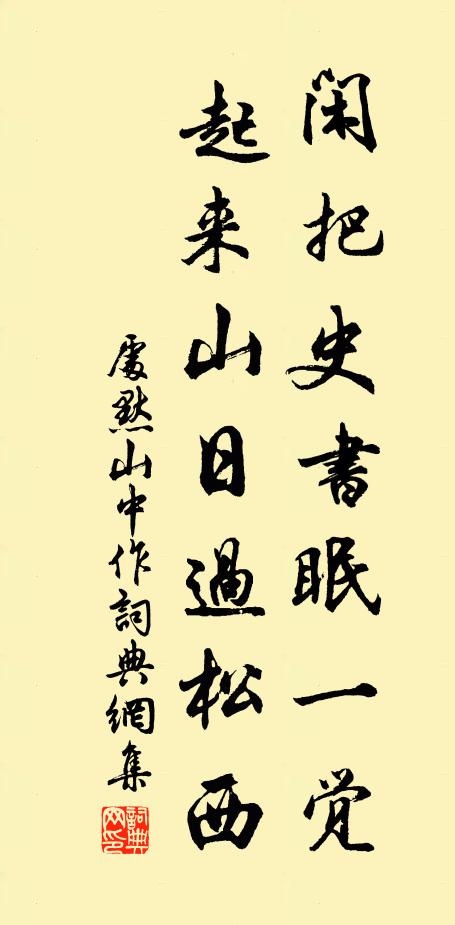 闲把史書眠一觉
起来山日過松西
處默山中作詞典網集
詞典網印